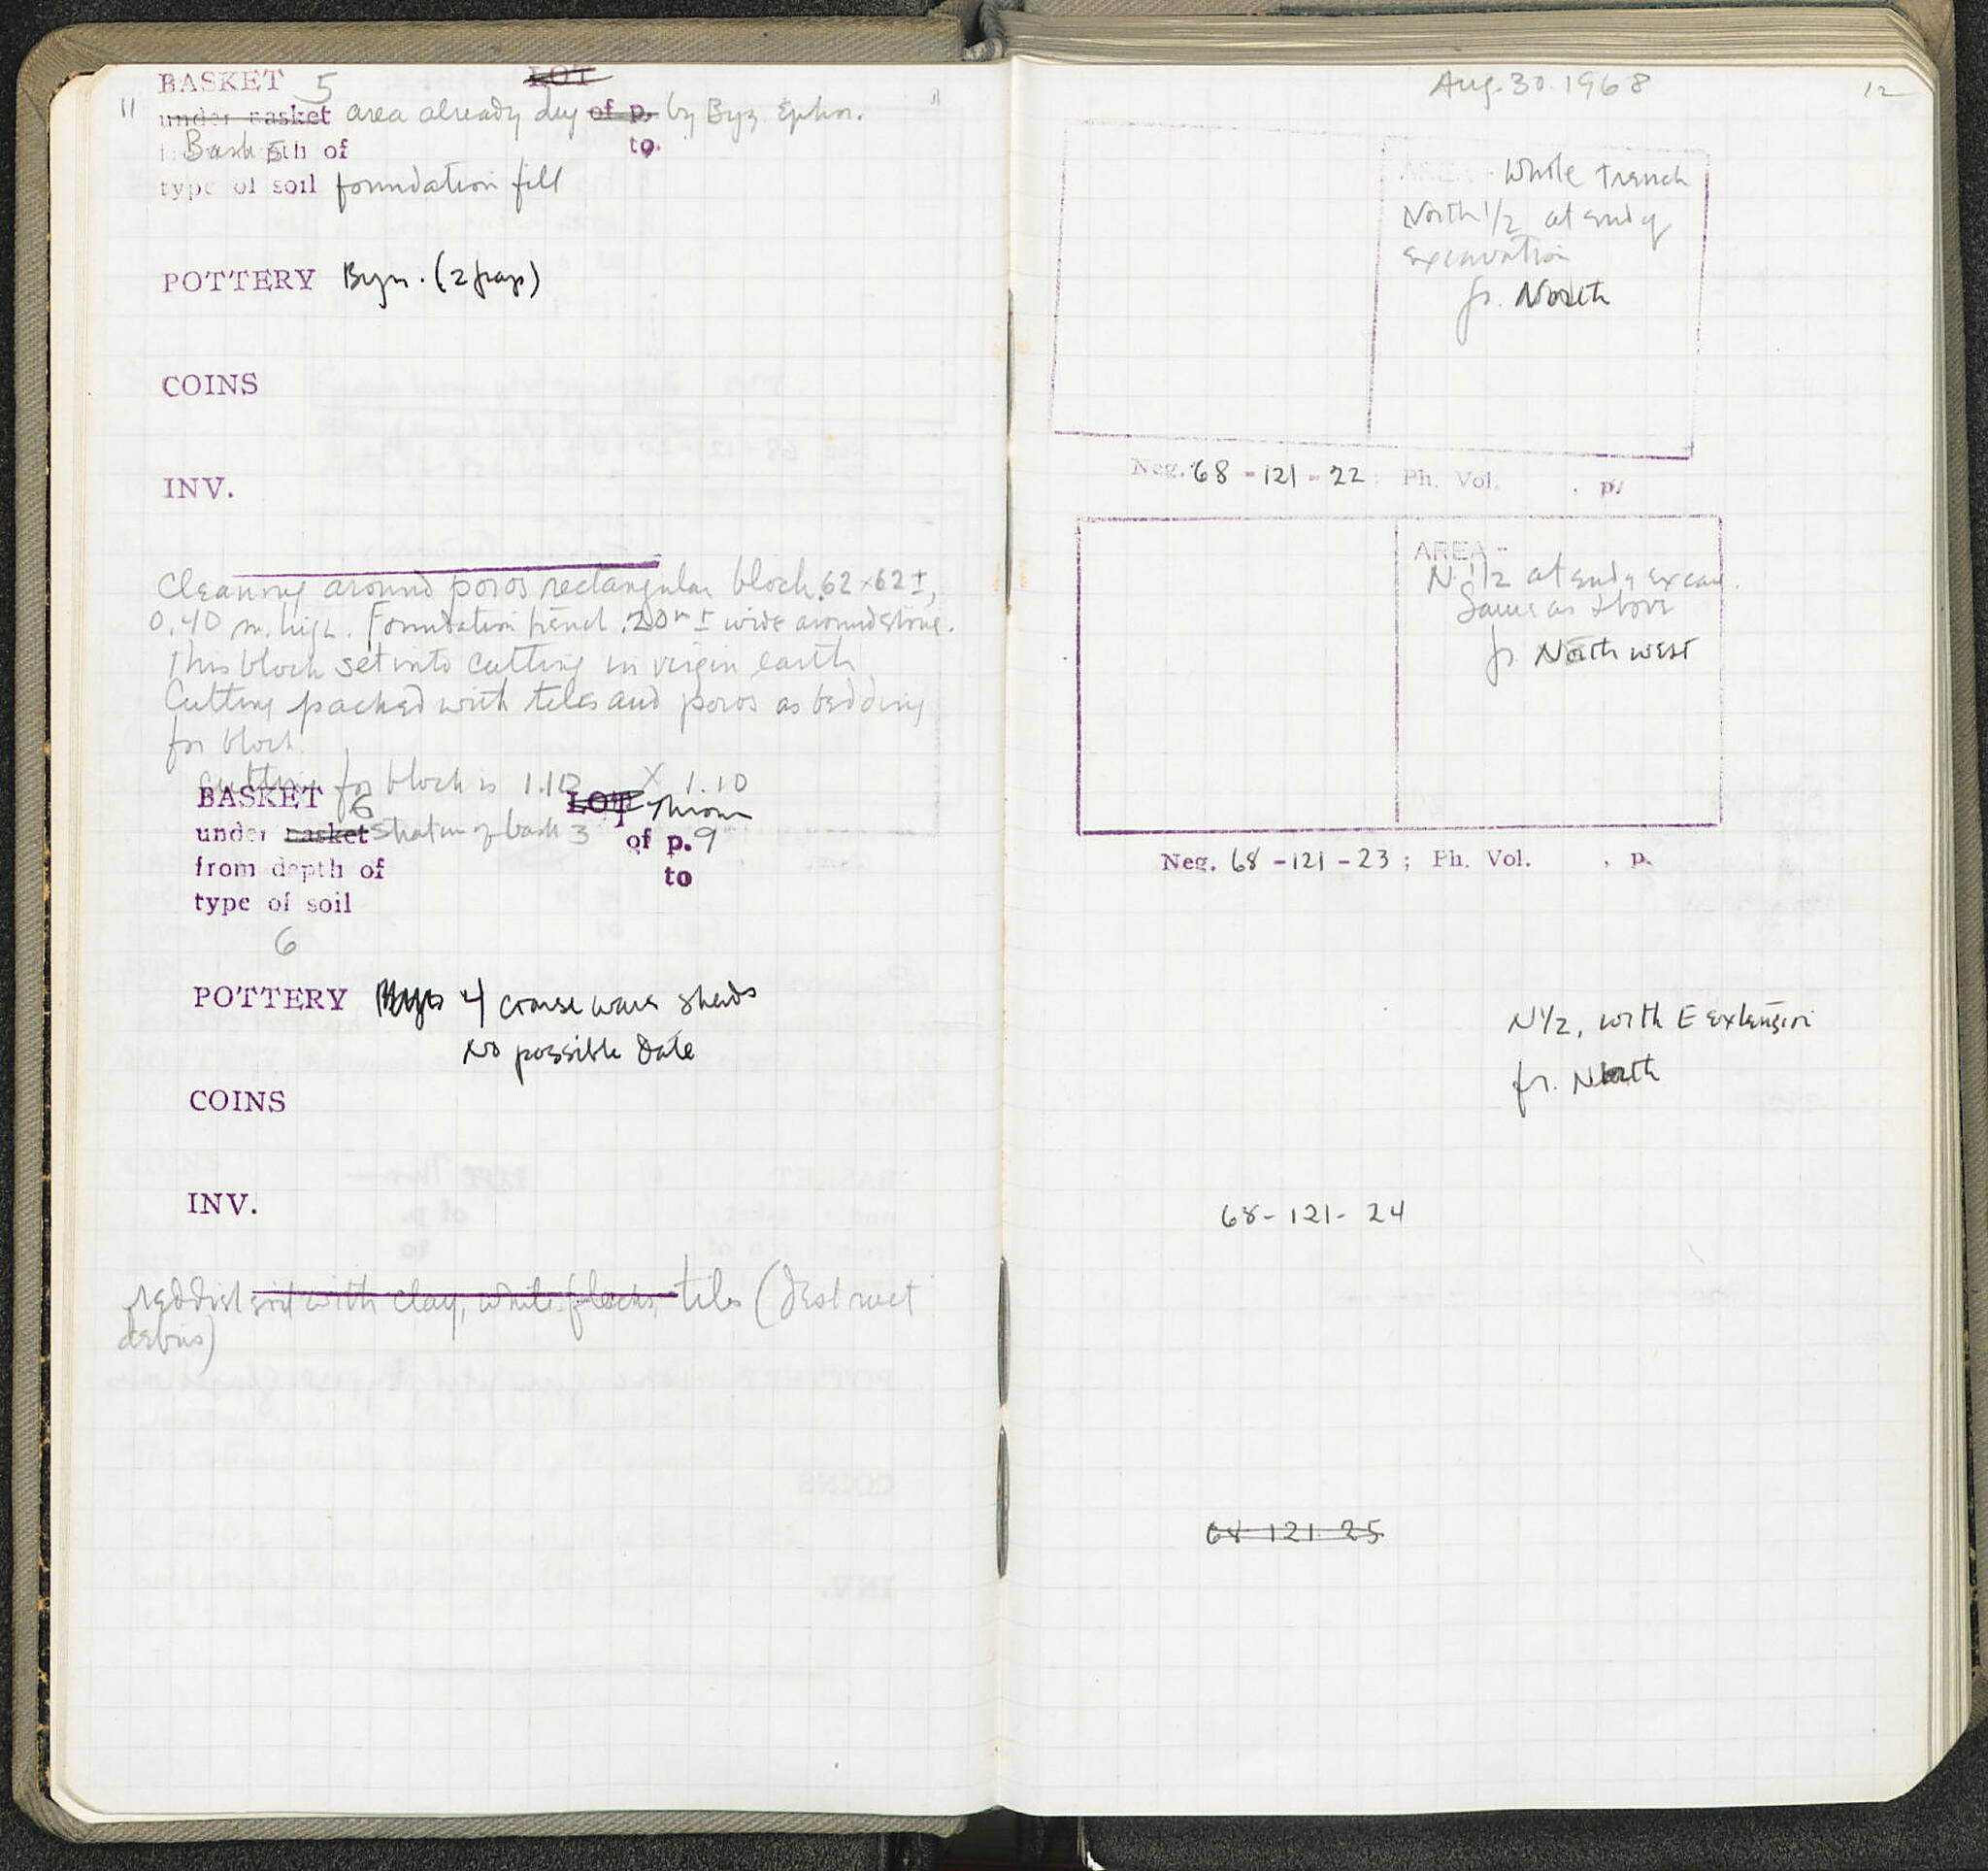 11
BASKET 5 LOT
under basket area already dug of p. by Byz. Ephor.
Bask 5 pth of to
type of soil foundation fill
POTTERY Byz. (2 frags)
COINS
INV.
Cleaning around poros rectangular block .62 x 62 ±,
0.40 m. high. Foundation trench .20 m ± wide around stone.
This block set into cutting in virgin earth
Cutting packed with tiles and poros as bedding
for block.
cutting for block is 1.10 x 1.10
BASKET 6 LOT Throw
under basket stratum of bask 3 of p. 9
from depth of to
type of soil
6
POTTERY 4 coarse ware sherds
No possible date
COINS
INV.
reddish soil with clay, white flecks, tiles (destruct
debris)
Aug. 30. 1968 12
AREA - Whole trench
North 1/2 at end of
excavation
fr. North
Neg. 68 - 121 - 22 ; Ph. Vol. , p.
AREA -
N. 1/2 at end of excav.
Same as above
fr North west
Neg. 68 - 121 - 23 ; Ph. Vol. , p.
N 1/2, with E extension
fr. North
68 - 121 - 24
68 121 25